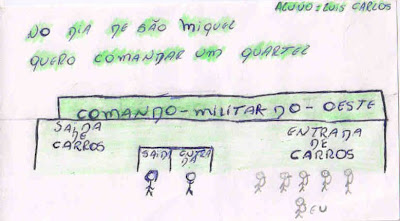 ALUNO = LUIS CARLOS
NO DIA DE SÃO MIGUEL
QUERO COMANDAR UM QUARTEL
COMANDO-MILITAR DO-OESTE
SAIDA
DE
CARROS
SAIDA
ENTRA
DA
ENTRADA
DE
CARROS
EU